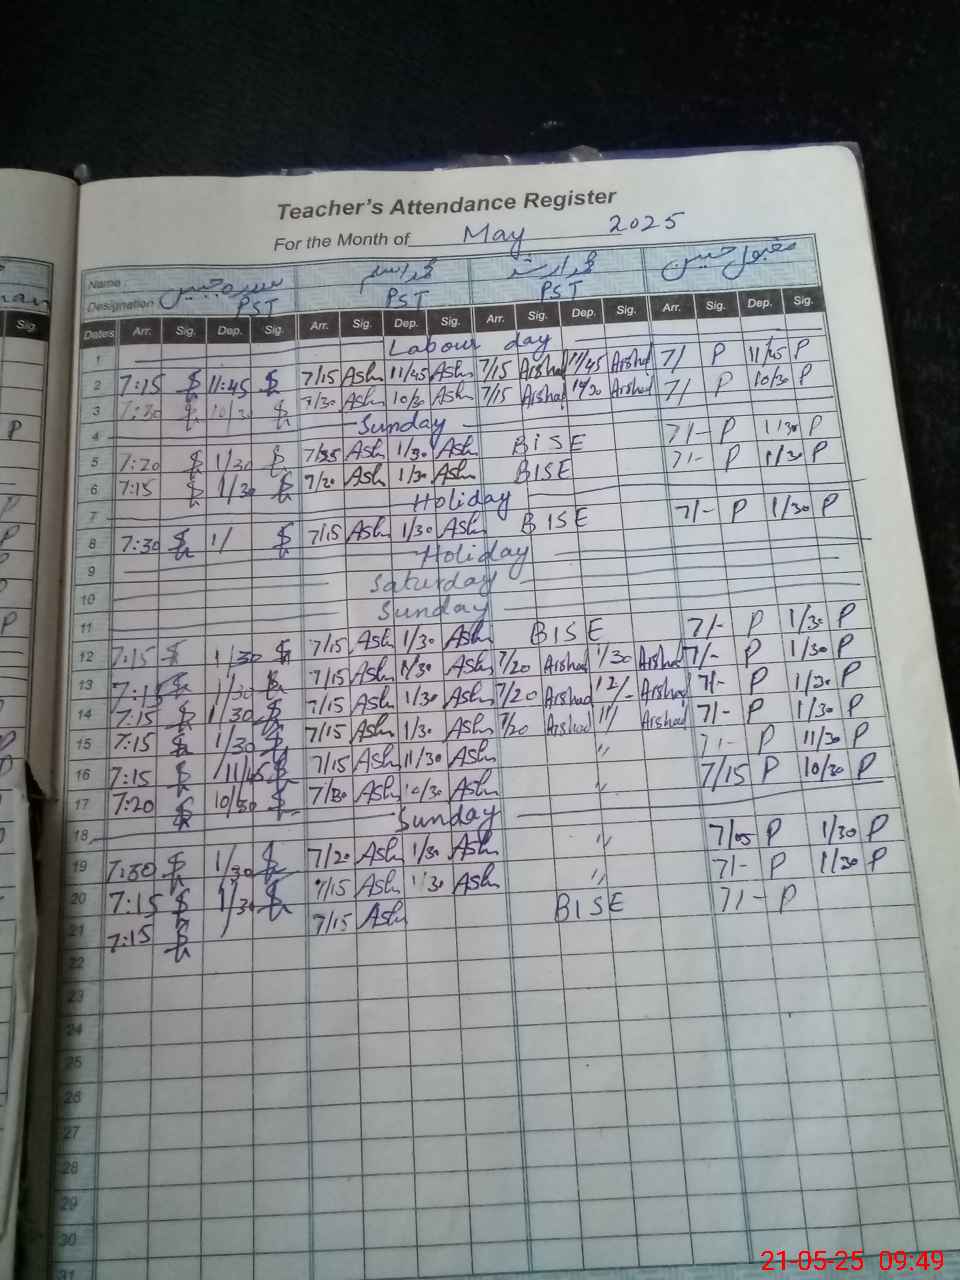 Teacher's Attendance Register
For the Month of May 2025
Name :
Designation PST PST PST مقبول حسین
Dates Arr. Sig. Dep. Sig. Arr. Sig. Dep. Sig. Arr. Sig. Dep. Sig. Arr. Sig. Dep. Sig.
1 Labour day
2 7:15 11:45 7/15 Ash 11/45 Ash 7/15 Arshad 11/45 Arshad 7/ P 11/45 P
3 7:30 10/30 7/30 Ash 10/30 Ash 7/15 Arshad 10/30 Arshad 7/ P 10/30 P
4 Sunday
5 7:20 1/30 Ash 1/30 Ash BISE 7/- P 1/30 P
6 7:15 1/30 7/20 Ash 1/30 Ash BISE 7/- P 1/30 P
7 Holiday
8 7:30 1/ 7/15 Ash 1/30 Ash BISE 7/- P 1/30 P
9 Holiday
10 Saturday
11 Sunday
12 7:15 1/30 7/15 Ash 1/30 Ash BISE 7/- P 1/30 P
13 7:15 1/30 7/15 Ash 1/30 Ash 7/20 Arshad 1/30 Arshad 7/- P 1/30 P
14 7:15 1/30 7/15 Ash 1/30 Ash 7/20 Arshad 12/- Arshad 7/- P 1/30 P
15 7:15 1/30 7/15 Ash 1/30 Ash 7/20 Arshad 11/ Arshad 7/- P 1/30 P
16 7:15 11/45 7/15 Ash 11/30 Ash " 7/- P 11/30 P
17 7:20 10/30 7/30 Ash 10/30 Ash " 7/15 P 10/30 P
18 Sunday
19 7:30 1/30 7/20 Ash 1/30 Ash " 7/05 P 1/30 P
20 7:15 1/30 7/15 Ash 1/30 Ash " 7/- P 1/30 P
21 7:15 7/15 Ash BISE 7/- P
22
23
24
25
26
27
28
29
30
31
21-05-25 09:49